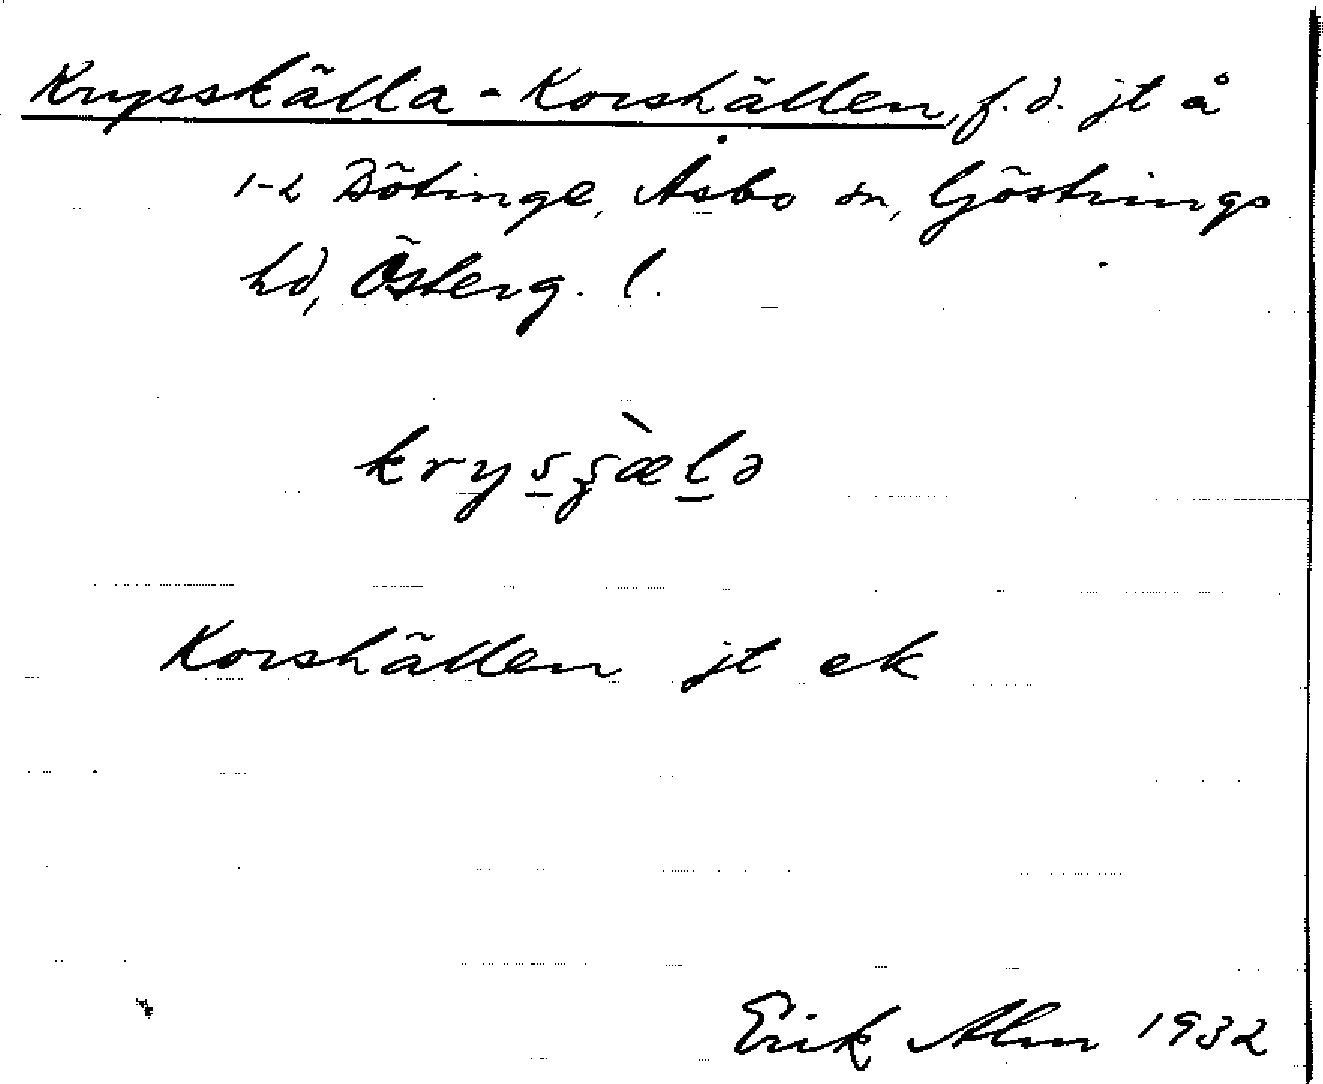 Krysskälla - Korshällen, f.d. jt å
1-2 Dötinge, Åsbo sn, Göstrings
hd, Österg. l.
krysʂæ̀lə
Korshällen jt ek
Erik Alm 1932